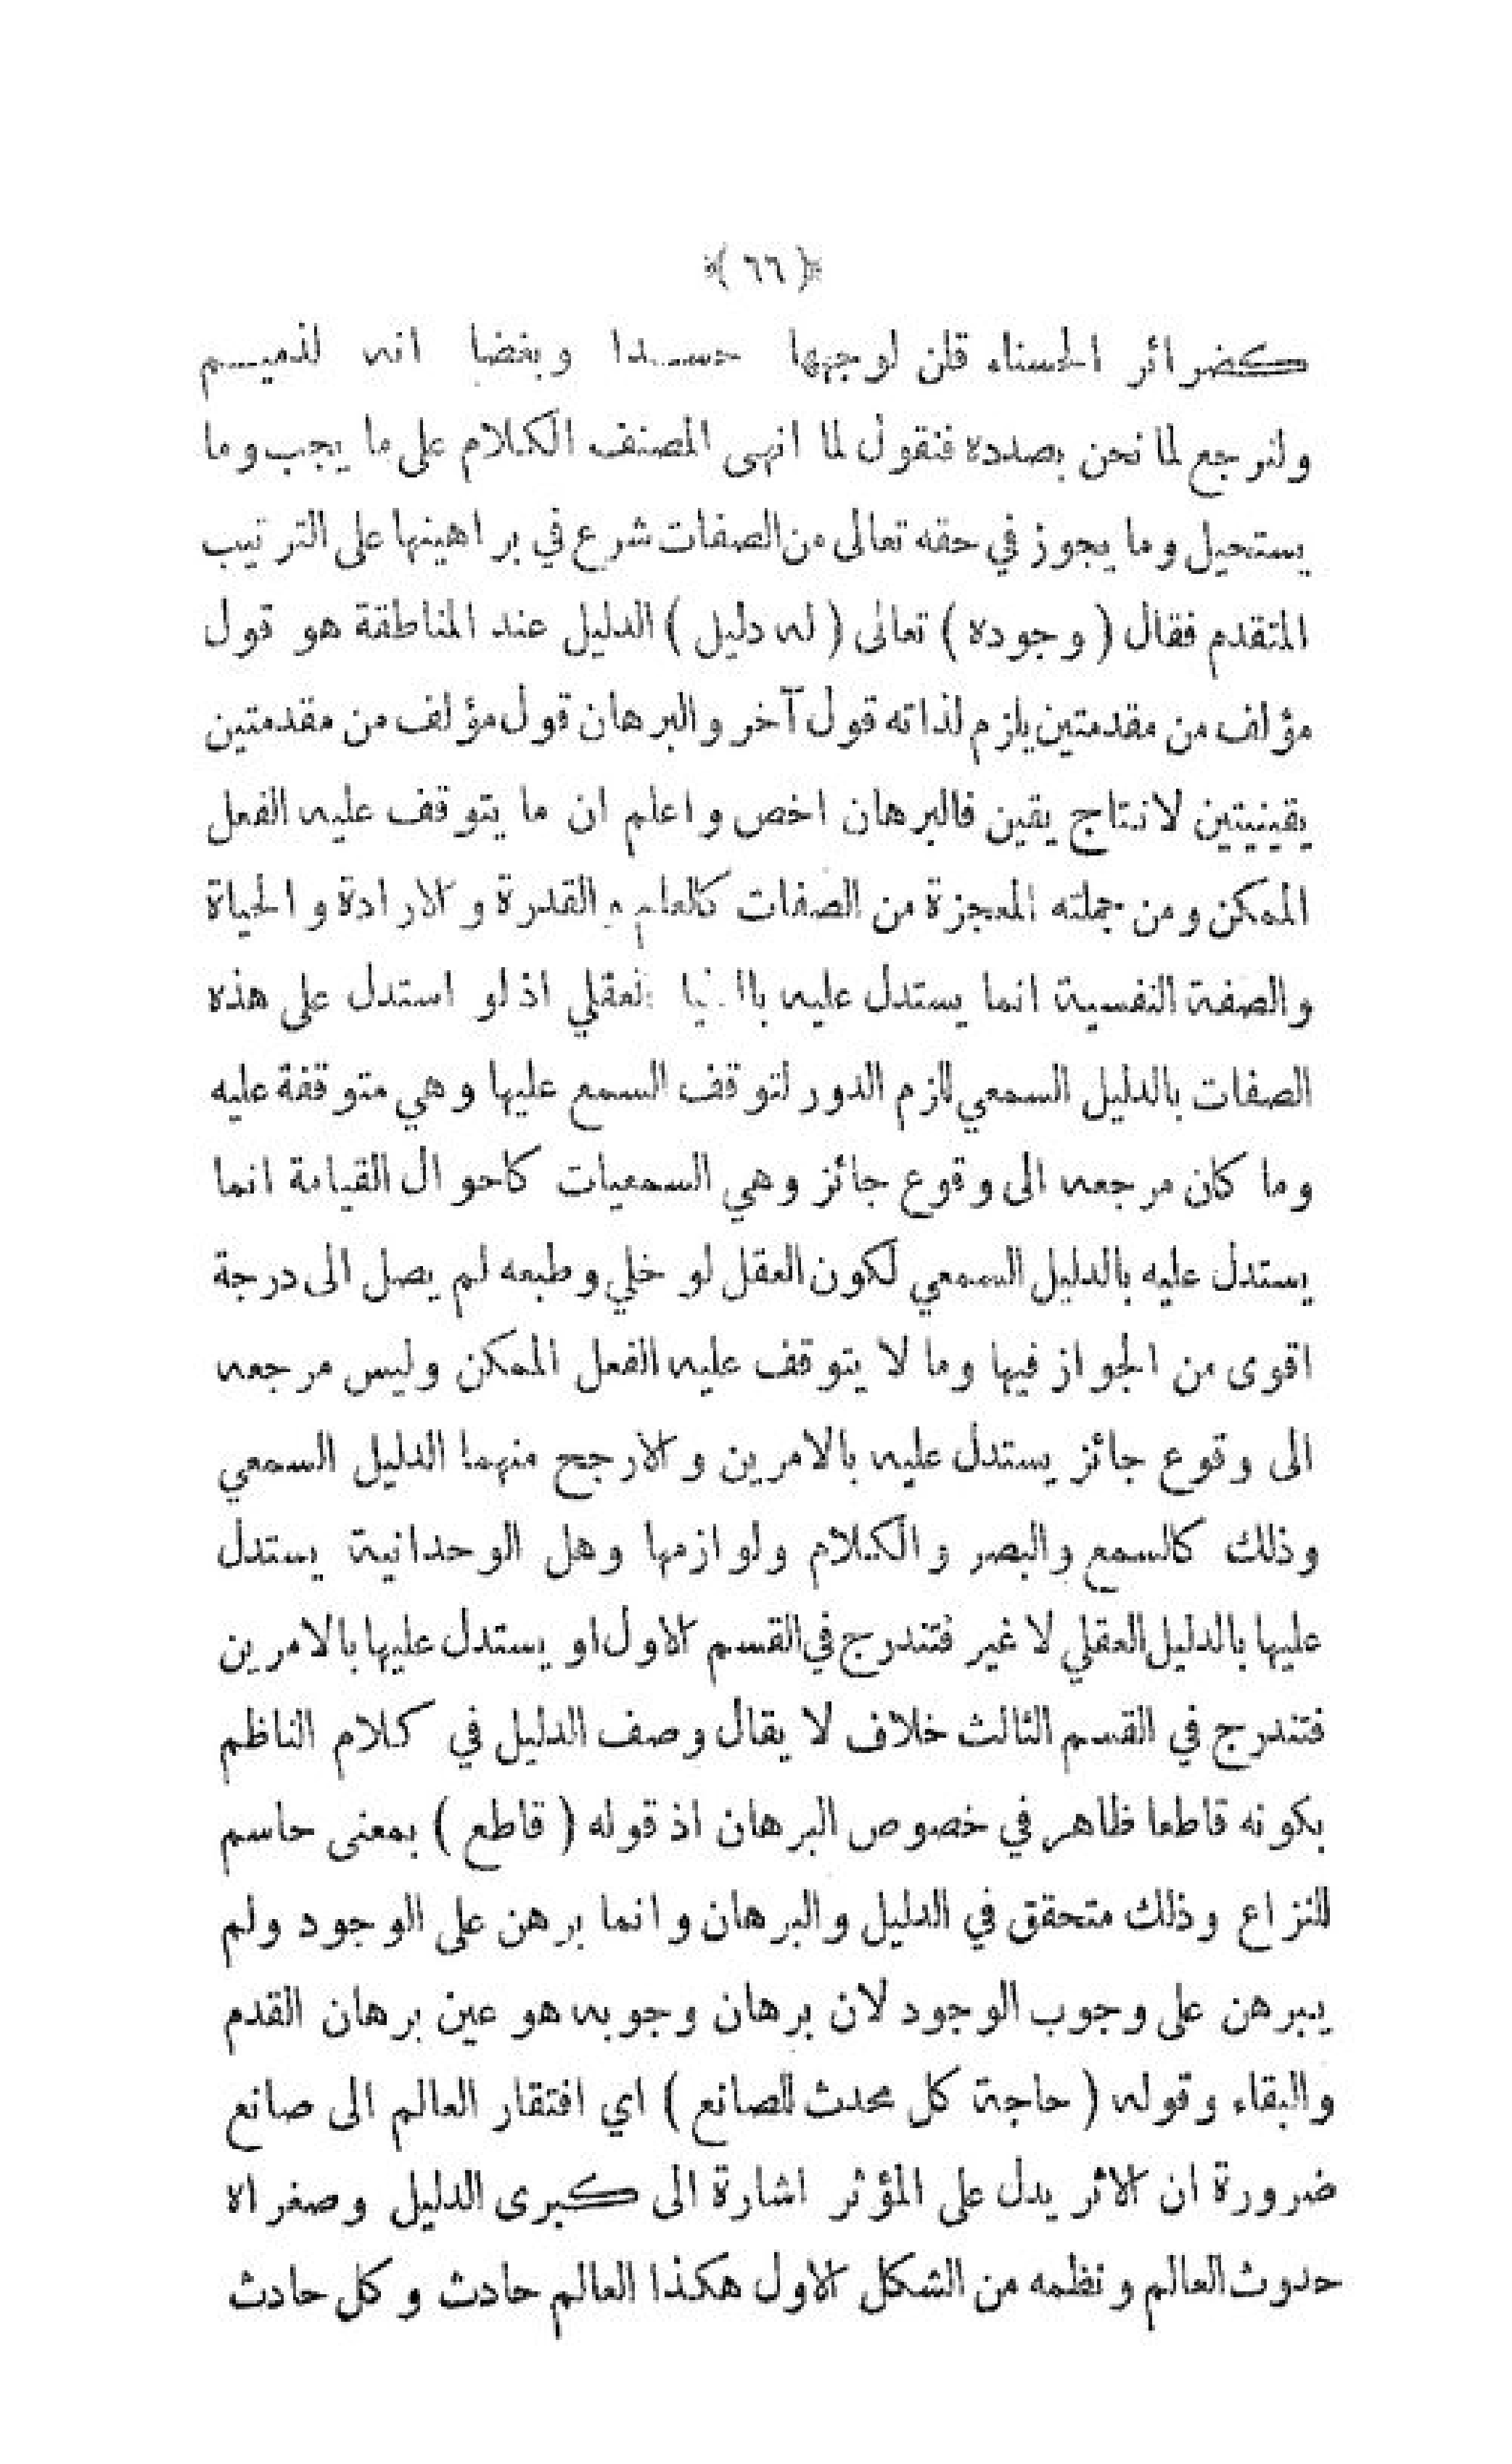 ﴿ ٦٦ ﴾
كضرائر الحسناء قلن لوجهها حسدا وبغضا انه لذميم
ولنرجع لما نحن بصدده فنقول لما انهى المصنف الكلام على ما يجب وما
يستحيل وما يجوز في حقه تعالى من الصفات شرع في براهينها على الترتيب
المتقدم فقال ( وجوده ) تعالى ( له دليل ) الدليل عند المناطقة هو قول
مؤلف من مقدمتين يلزم لذاته قول آخر والبرهان قول مؤلف من مقدمتين
يقينيتين لانتاج يقين فالبرهان اخص واعلم ان ما يتوقف عليه الفعل
الممكن ومن جملته المعجزة من الصفات كالعلم والقدرة والارادة والحياة
والصفة النفسية انما يستدل عليه العقلي اذ لو استدل على هذه
الصفات بالدليل السمعي للزم الدور لتوقف السمع عليها وهي متوقفة عليه
وما كان مرجعه الى وقوع جائز وهي السمعيات كاحوال القيامة انما
يستدل عليه بالدليل السمعي لكون العقل لو خلي وطبعه لم يصل الى درجة
اقوى من الجواز فيها وما لا يتوقف عليه الفعل الممكن وليس مرجعه
الى وقوع جائز يستدل عليه بالامرين والارجح منهما الدليل السمعي
وذلك كالسمع والبصر والكلام ولوازمها وهل الوحدانية يستدل
عليها بالدليل العقلي لا غير فتندرج في القسم الاول او يستدل عليها بالامرين
فتندرج في القسم الثالث خلاف لا يقال وصف الدليل في كلام الناظم
بكونه قاطعا ظاهر في خصوص البرهان اذ قوله ( قاطع ) بمعنى حاسم
للنزاع وذلك متحقق في الدليل والبرهان وانما برهن على الوجود ولم
يبرهن على وجوب الوجود لان برهان وجوبه هو عين برهان القدم
والبقاء وقوله ( حاجة كل محدث للصانع ) اي افتقار العالم الى صانع
ضرورة ان الاثر يدل على المؤثر اشارة الى كبرى الدليل وصغراه
حدوث العالم ونظمه من الشكل الاول هكذا العالم حادث وكل حادث